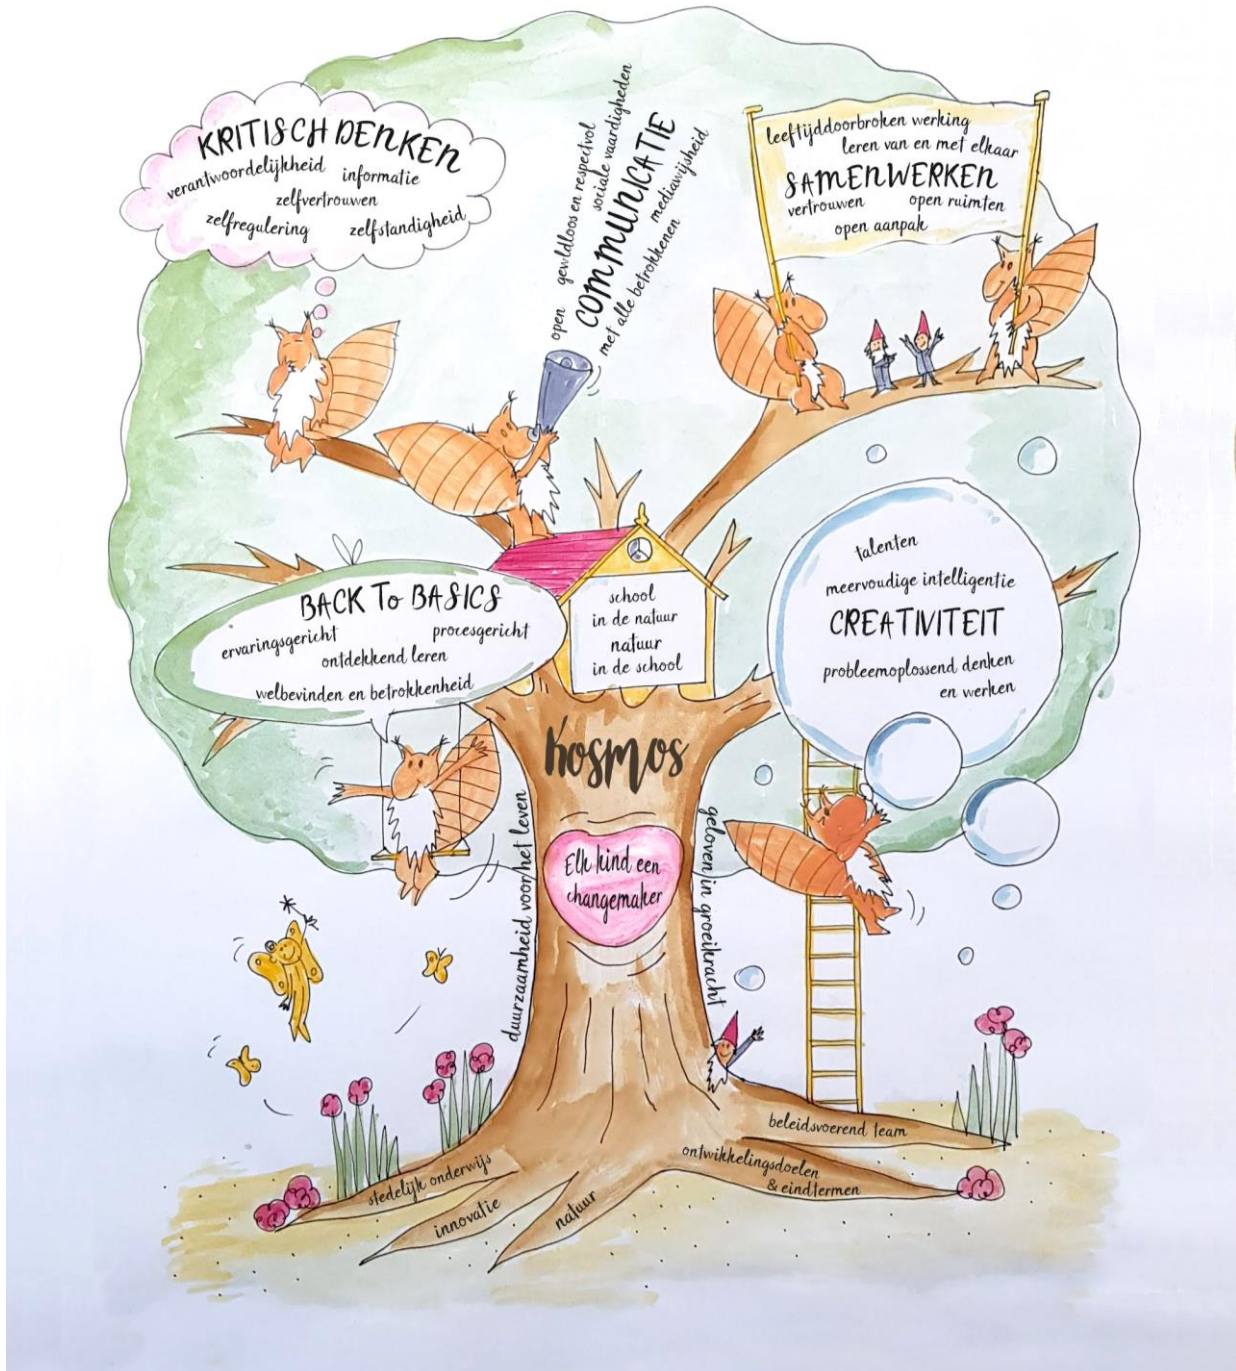 KRITISCH DENKEN
verantwoordelijkheid informatie
zelfvertrouwen
zelfregulering zelfstandigheid
open geweldloos en respectvol
sociale vaardigheden
COMMUNICATIE
met alle betrokkenen mediawijsheid
leeftijddoorbroken werking
leren van en met elkaar
SAMENWERKEN
vertrouwen open ruimten
open aanpak
BACK To BASICS
ervaringsgericht procesgericht
ontdekkend leren
welbevinden en betrokkenheid
school
in de natuur
natuur
in de school
talenten
meervoudige intelligentie
CREATIVITEIT
probleemoplossend denken
en werken
Kosmos
Elk kind een
changemaker
duurzaamheid voor het leven
geloven in groeikracht
stedelijk onderwijs
innovatie
natuur
ontwikkelingsdoelen
& eindtermen
beleidsvoerend team